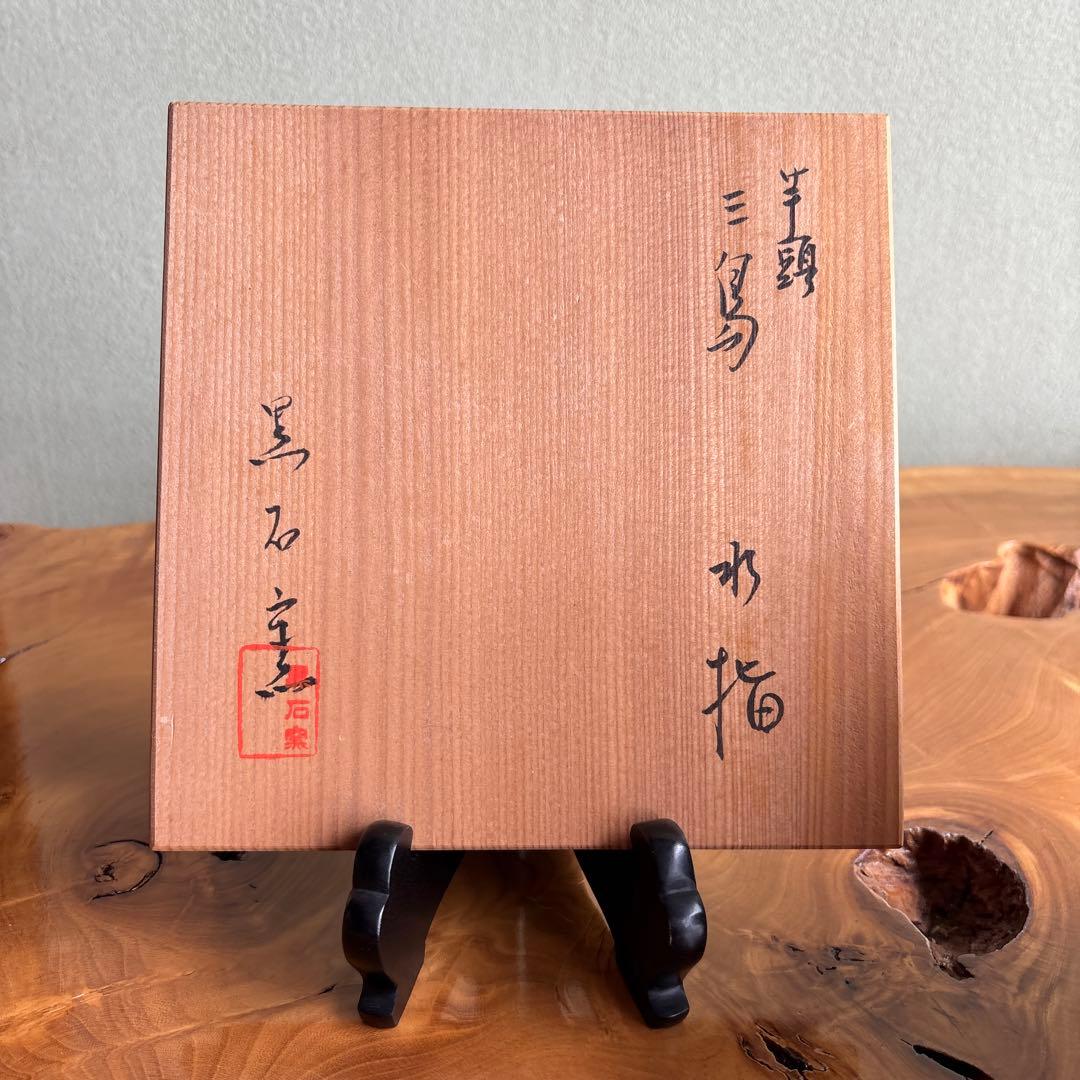 芋頭
三島 水指
黒石窯
石窯